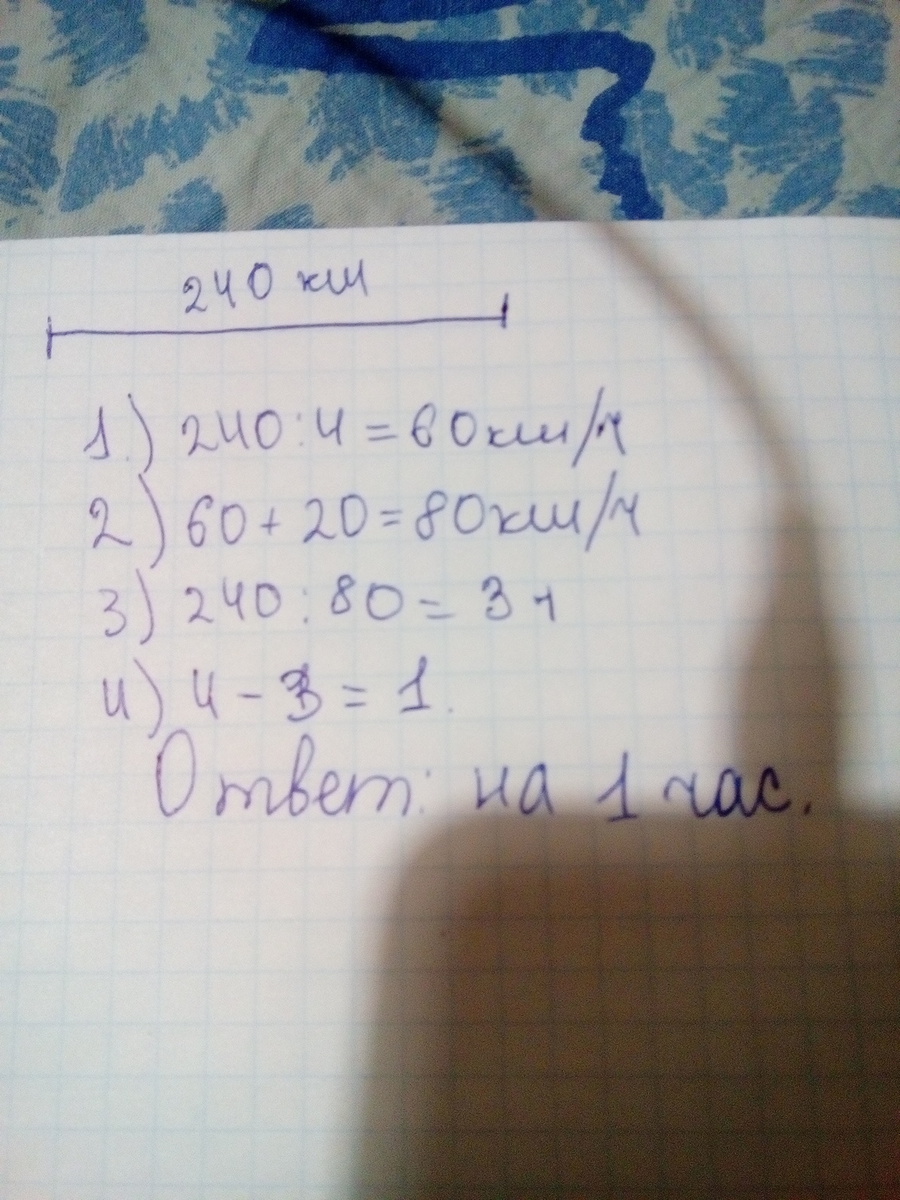 240 км
1.) 240:4=60км/ч
2) 60+20=80км/ч
3) 240:80=3ч
4) 4-3=1.
Ответ: на 1 час.